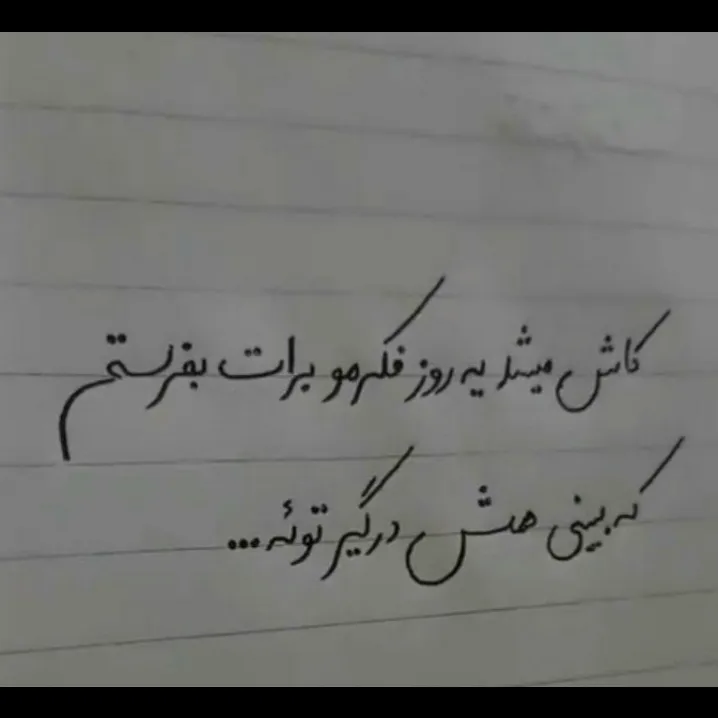 کاش میشد یه روز فکرمو برات بفرستم
که ببینی همش درگیر توئه...